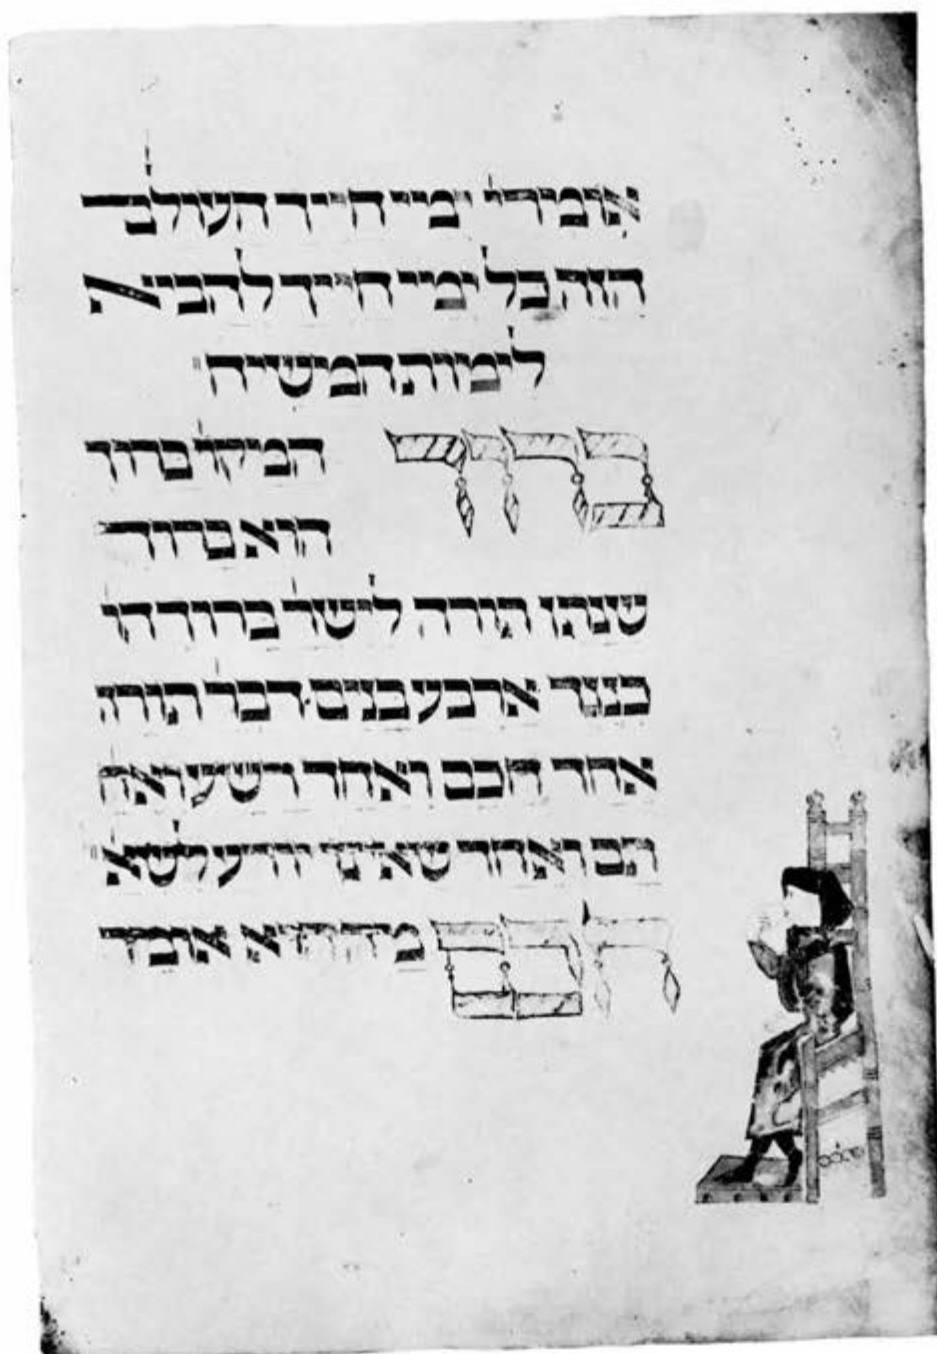 אומרי' ימיי חייך העולם
הזה כל ימיי חייך להביא
לימות המשיח
ברוך המקו' ברוך
הוא ברוך
שנתן תורה לישר' ברוך הו
כנגד ארבע בנים דבר' תורה
אחד חכם ואחד רשע ואח
תם ואחד שאינו יודע לשא
חכם מה הוא אומר